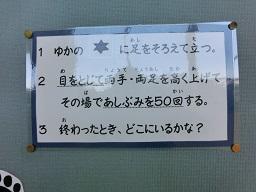 1 ゆかの ★ に足をそろえて立つ。
2 目をとじて両手・両足を高く上げて
その場であしぶみを50回する。
3 終わったとき、どこにいるかな？